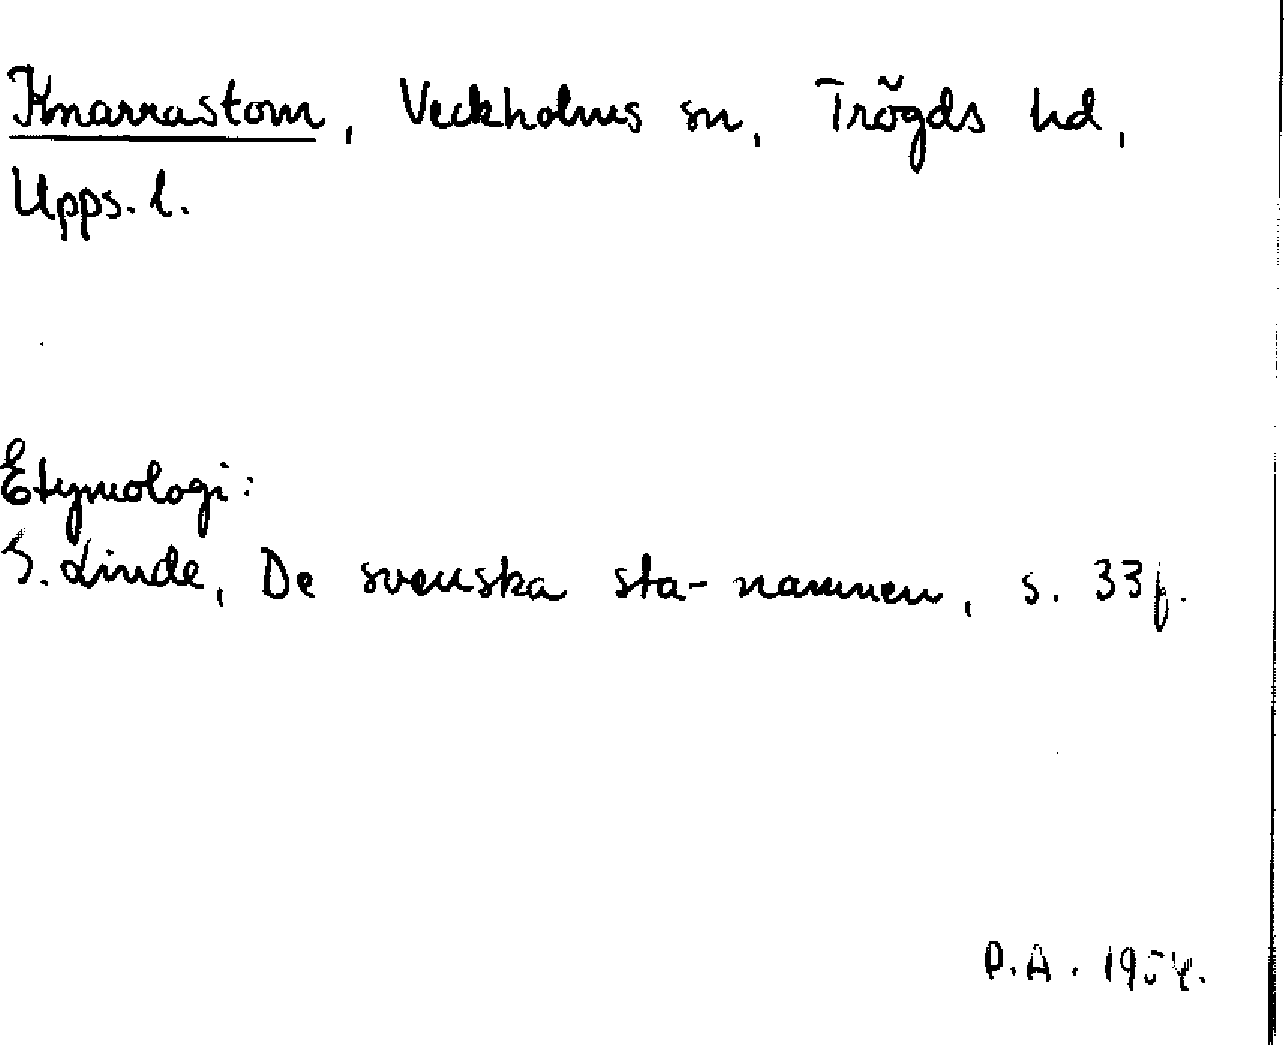 Knarrastom, Veckholms sn, Trögds hd,
Upps. l.
Etymologi:
G. Linde, De svenska sta-namnen, s. 33f.
P.A. 1954.